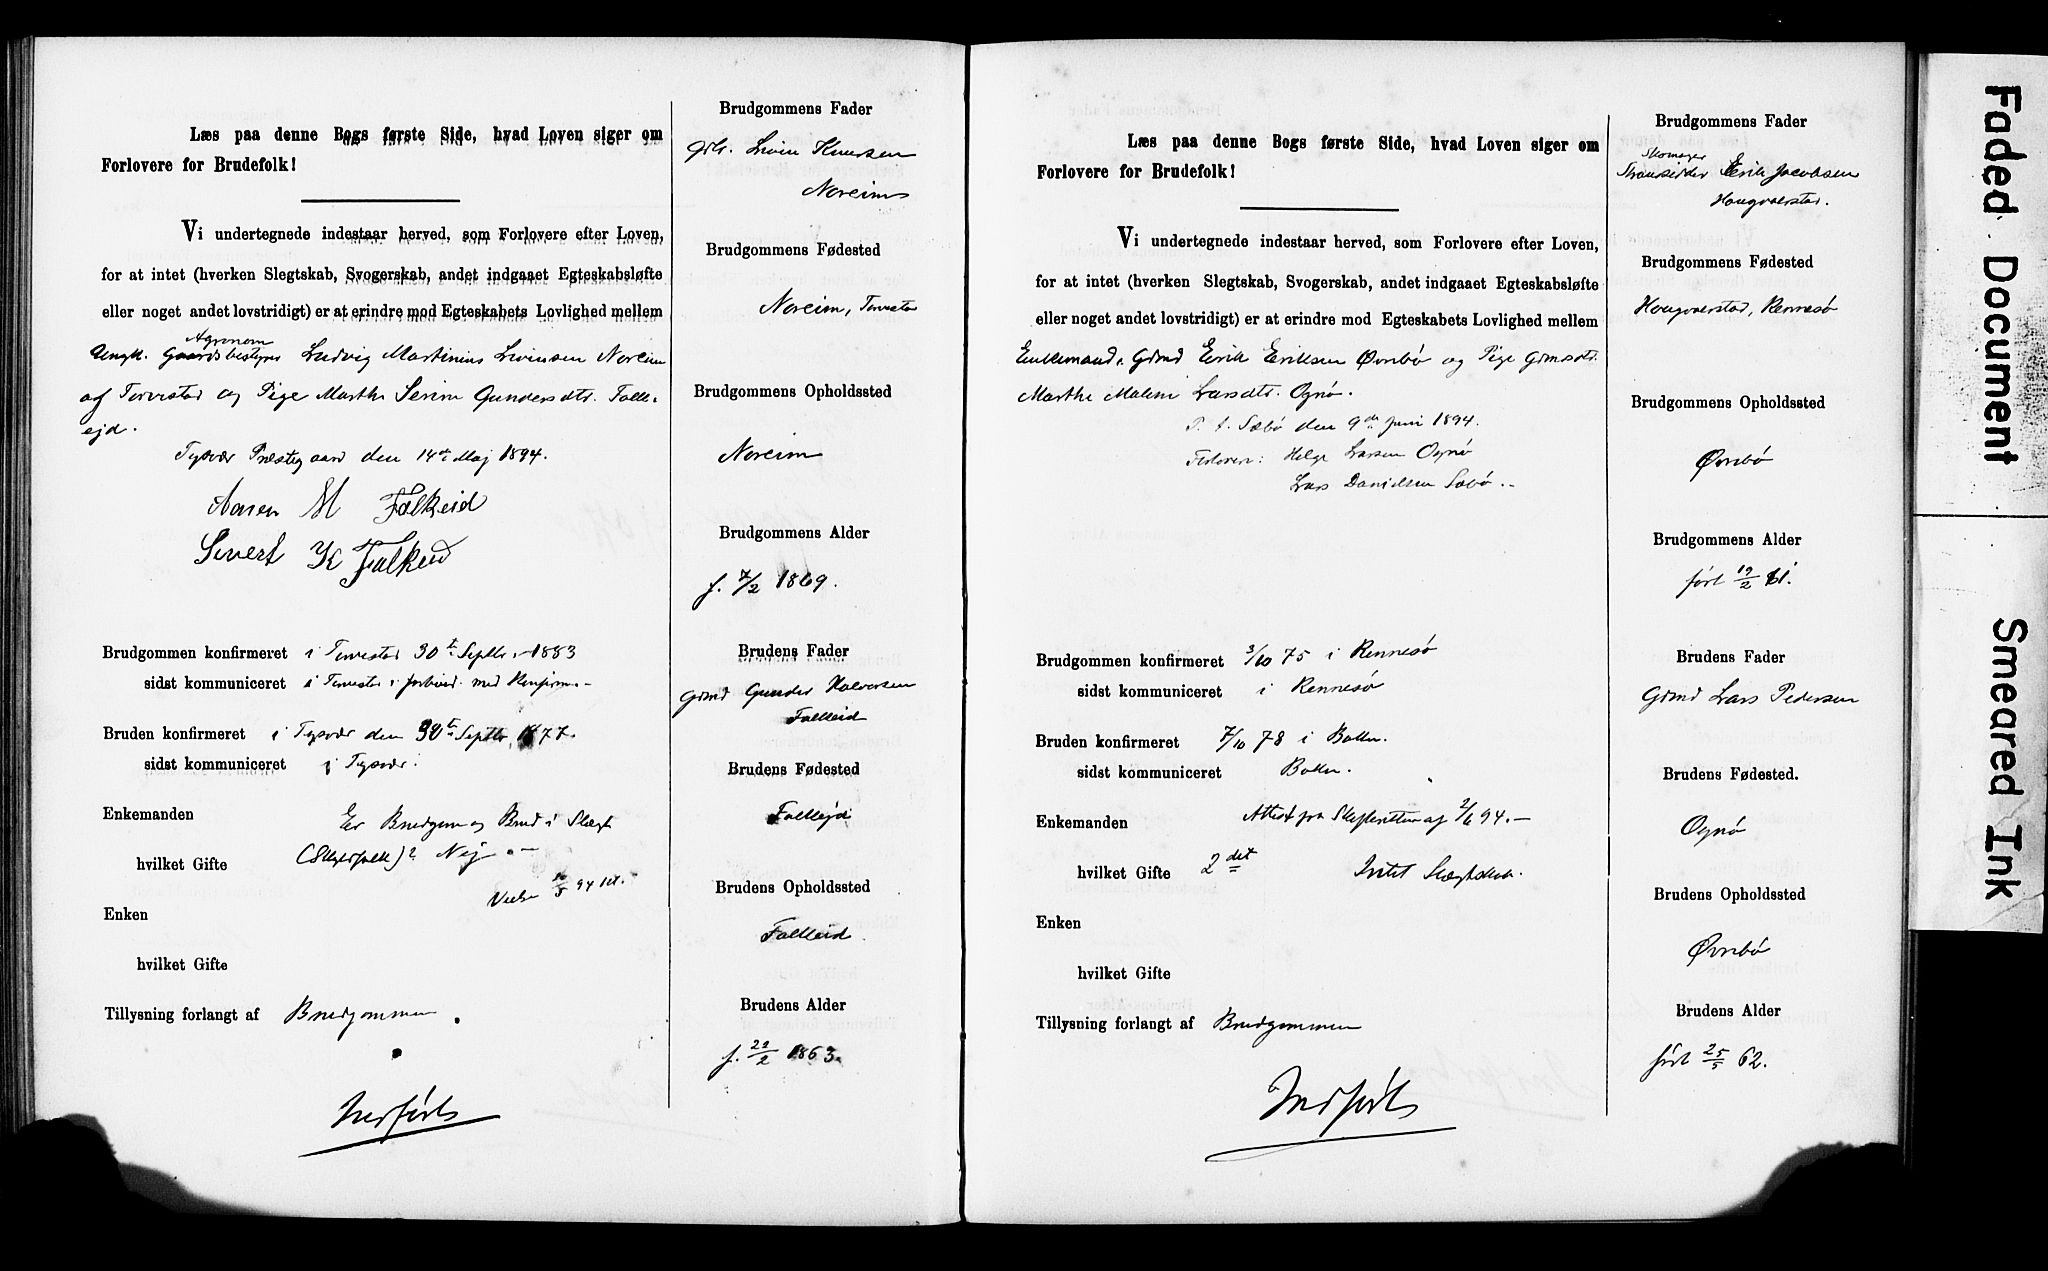 Læs paa denne Bogs første Side, hvad Loven siger om
Forlovere for Brudefolk!
Vi undertegnede indestaar herved, som Forlovere efter Loven,
for at intet (hverken Slegtskab, Svogerskab, andet indgaaet Egteskabsløfte
eller noget andet lovstridigt) er at erindre mod Egteskabets Lovlighed mellem
Agronom
Ungk. Gaardsbestyrer Ludvig Martinius Livinsen Noreim
af Torvestad og Pige Marthe Serine Gundersdtr. Falk-
ejd.
Tysvær Præstegaard den 14de Maj 1894.
Aanen M Falkeid
Sivert K Falkeid
Brudgommen konfirmeret i Torvestad 30te Septbr. 1883
sidst kommuniceret i Torvestad i forbind. med Konfirm.-
Bruden konfirmeret i Tysvær den 30te Septbr. 1877.
sidst kommuniceret i Tysvær.
Enkemanden Er Brudgom og Brud i Slægt
hvilket Gifte Nej.-
94
Enken
hvilket Gifte
Tillysning forlangt af Brudgommen.
Indført
Brudgommens Fader
Gbr. Livin Knutsen
Noreim
Brudgommens Fødested
Noreim, Torvestad
Brudgommens Opholdssted
Noreim
Brudgommens Alder
f. 7/2 1869.
Brudens Fader
Grmd Gunder Halvorsen
Falkeid
Brudens Fødested
Falkejd
Brudens Opholdssted
Falkeid.
Brudens Alder
f. 22/2 1863.
Læs paa denne Bogs første Side, hvad Loven siger om
Forlovere for Brudefolk!
Vi undertegnede indestaar herved, som Forlovere efter Loven,
for at intet (hverken Slegtskab, Svogerskab, andet indgaaet Egteskabsløfte
eller noget andet lovstridigt) er at erindre mod Egteskabets Lovlighed mellem
Enkemand, Grmd Eirik Eriksen Øvrebø og Pige Grmsdtr.
Marthe Malene Larsdtr. Ognø.
P. t. Sæbø den 9de Juni 1894.
Forlovere: Helge Larsen Ognø
Lars Danielsen Sæbø.-
Brudgommen konfirmeret 3/10 75 i Rennesø
sidst kommuniceret i Rennesø
Bruden konfirmeret 7/10 78 i Bokn.
sidst kommuniceret Bokn.
Enkemanden Attest fra Skifteretten af 2/6 94.-
hvilket Gifte 2det Intet Slægtskab.
Enken
hvilket Gifte
Tillysning forlangt af Brudgommen
Indført
Brudgommens Fader
Skomager
Strandsidder Erik Jacobsen
Haugvaerstad.
Brudgommens Fødested
Haugvaerstad, Rennesø
Brudgommens Opholdssted
Øvrebø
Brudgommens Alder
født 19/2 61.
Brudens Fader
Grmd Lars Pedersen
Brudens Fødested.
Ognø
Brudens Opholdssted
Øvrebø
Brudens Alder
født 25/5 62.
Faded Document
Smeared Ink